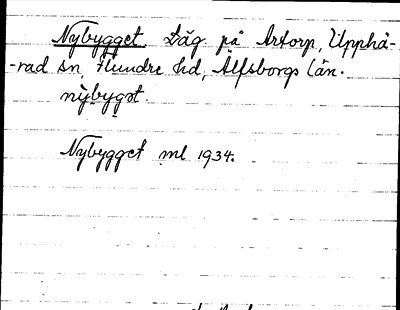 Nybygget. Låg på Artorp, Upphä-
-rad sn, Flundre hd, Älfsborgs län.
nỳbygət.
Nybygget ml 1934.